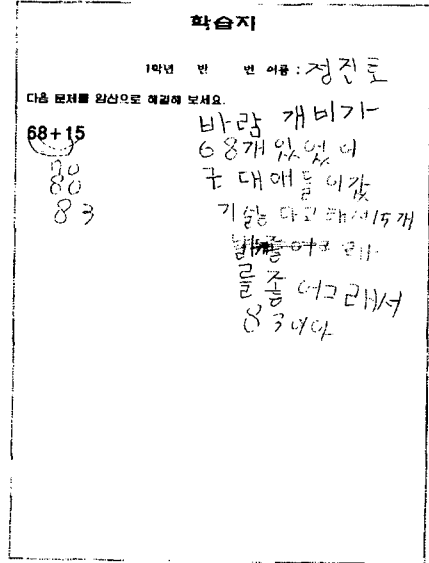 학습지
1학년 반 번 이름 : 정진호
다음 문제를 암산으로 해결해 보세요.
68+15
80
83
바람 개비가
68개 있었어
근대애들이갔
기싫다고해서15개
를줌 어그래서
83이야